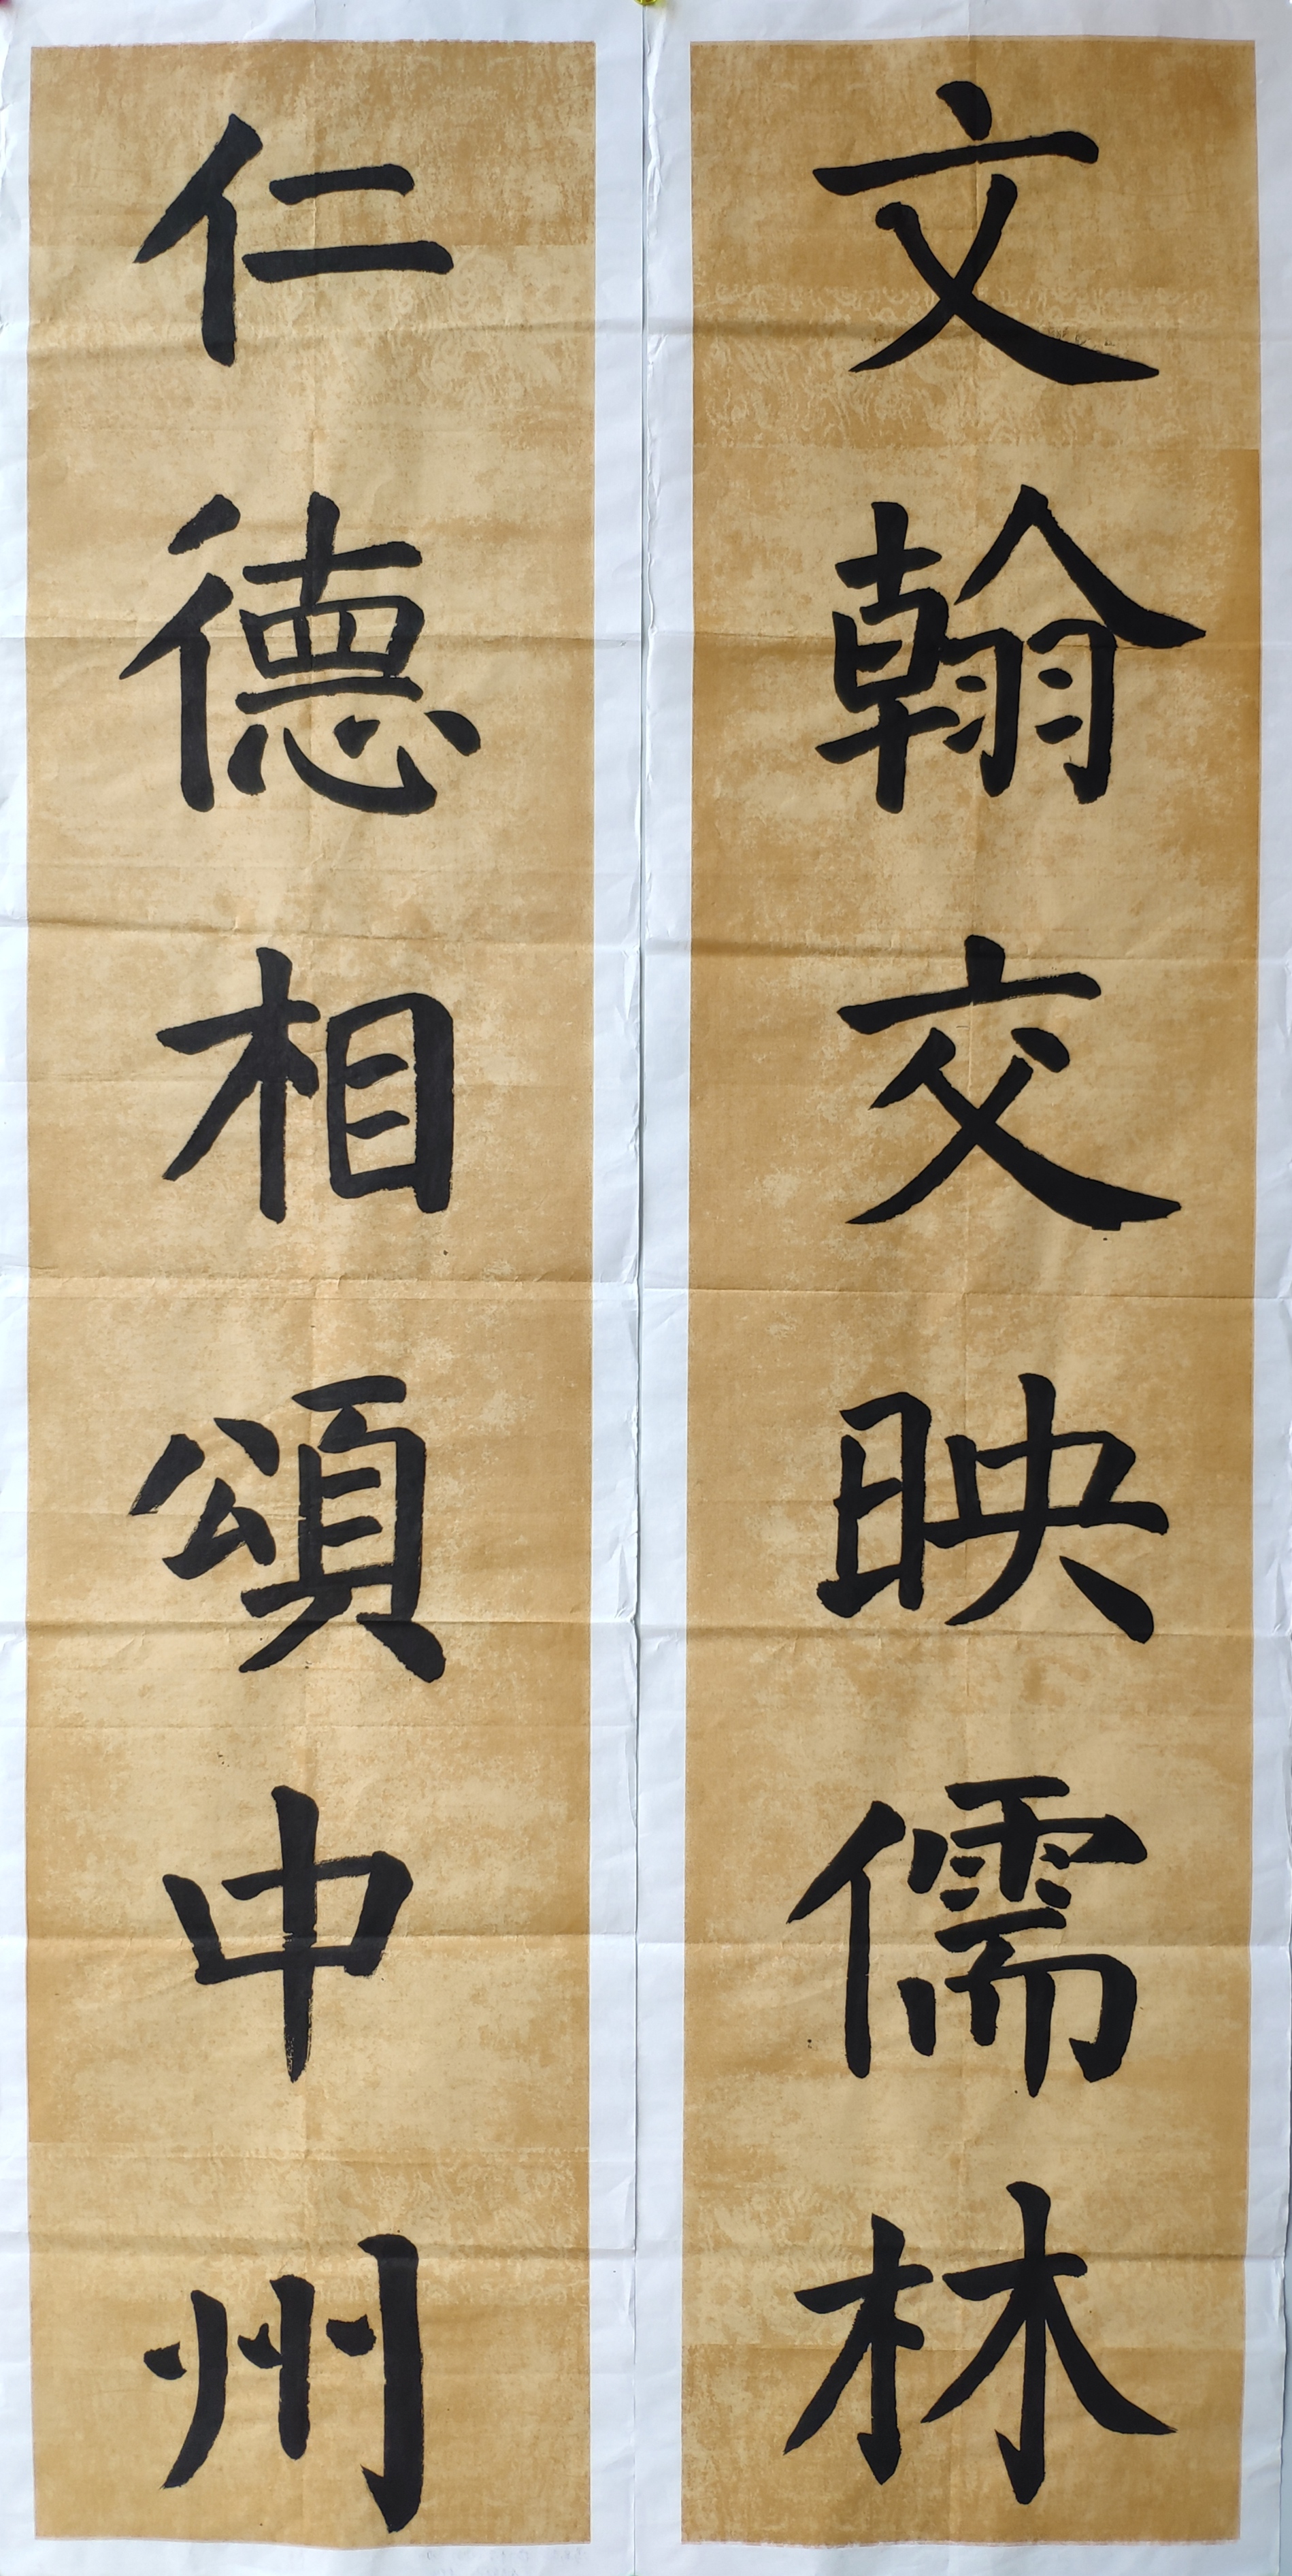 文翰交映儒林
仁德相頌中州